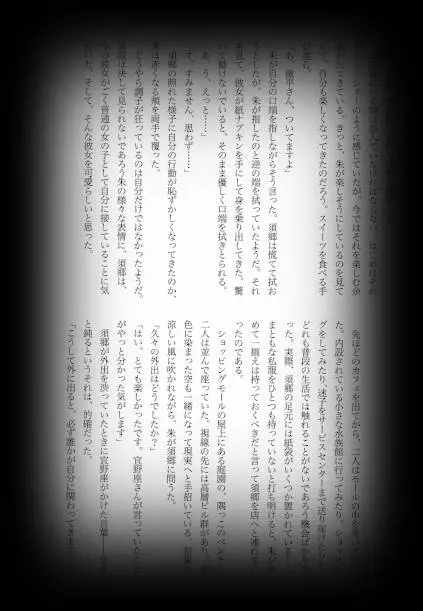 なければならない。はじめはそれ
シャーのように感じていたが、今ではそれを楽しむ余
が出てきている。きっと、朱が楽しそうにしているのを見て
て、自分も楽しくなってきたのだろう。スイーツを食べる手
「あ、徹平さん、ついてますよ」
朱が自分の口端を指しながらそう言った。須郷は慌てて拭お
うとしたが、朱が指したのと逆の端を拭っていたようだ。それ
を見て、彼女が紙ナプキンを手にして身を乗り出してきた。驚
いて動けないでいると、そのまま優しく口端を拭きとられる。
「あ、う、えっと……」
「す、すみません、思わず……」
須郷の照れた様子に自分の行動が恥ずかしくなってきたのか、
朱は赤くなる頬を両手で覆った。
どうやら調子が狂っているのは自分だけではなかったようだ。
普段は決して見られないであろう朱の様々な表情に、須郷は、
の彼女がごく普通の女の子として自分に接していることに気
いた。そして、そんな彼女を可愛らしいと思った。
先ほどのカフェを出てから、二人はモールの中を歩い
た。内設されている小さな水族館に行ってみたり、ショッピ
グをしてみたり、迷子をサービスセンターまで送り届けたり
どれも普段の生活では触れることがないであろう機会ばかり
った。実際、須郷の足元には紙袋がいくつか置かれている
まともな私服をひとつも持っていないと打ち明けると、朱が
めて一揃えは持っておくべきだと言って須郷を店へと連れて
ったのである。
ショッピングモールの屋上にある庭園の、隅っこのベンチ
二人は並んで座っていた。視線の先には高層ビル群があり、
色に染まった空も一緒になって現実へと手招いている。
涼しい風に吹かれながら、朱が須郷に問うた。
「久々の外出はどうでしたか？」
「はい、とても楽しかったです。宜野座さんが言っていたこと
がやっと分かった気がします」
須郷が外出を渋っていたときに宜野座がかけた言葉
と鈍るというそれは、的確だった。
「こうして外に出ると、必ず誰かが自分に関わってきます